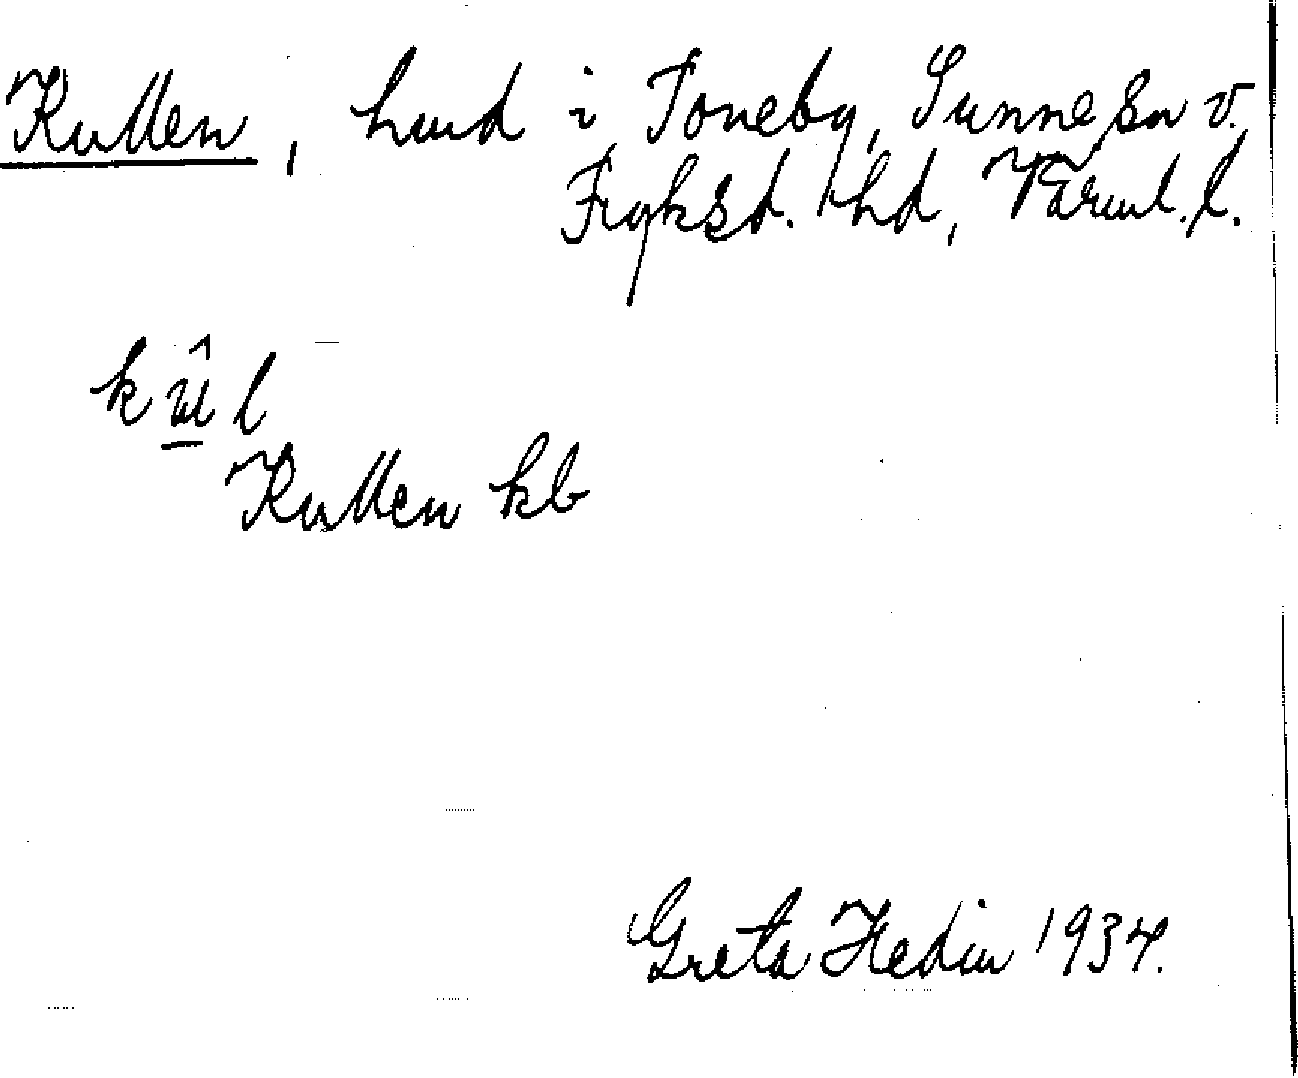 Kullen, hmd i Toneby, Sunne sn v.
Fryksd. hd, Värml. l.
kû̱l
Kullen kb
Greta Hedin 1934.